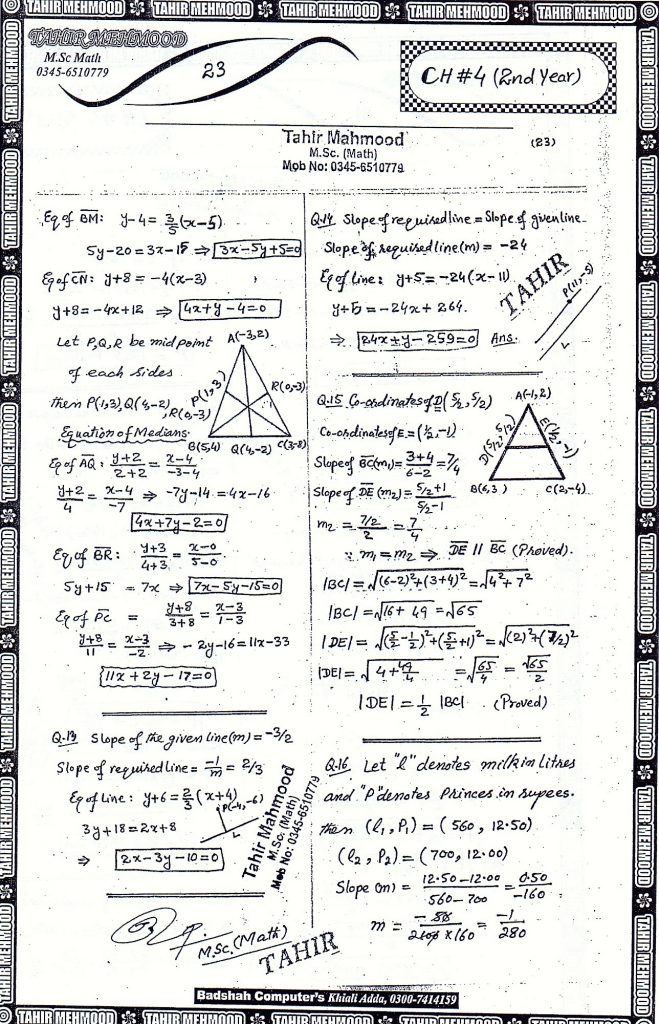 TAHIR MEHMOOD TAHIR MEHMOOD TAHIR MEHMOOD TAHIR MEHMOOD TAHIR MEHMOOD
TAHIR MEHMOOD
M.Sc Math
0345-6510779
23
CH #4 (2nd Year)
Tahir Mahmood
M.Sc. (Math)
Mob No: 0345-6510779
(23)
Eq of BM: y-4 = 3/5(x-5)
5y-20 = 3x-15 ⇒ 3x-5y+5=0
Eq of CN: y+8 = -4(x-3)
y+8 = -4x+12 ⇒ 4x+y-4=0
Let P,Q,R be mid point
of each sides
then P(1,3), Q(4,-2), R(0,-3)
A(-3,2)
P(1,3)
R(0,-3)
B(5,4) Q(4,-2) C(3,-8)
Equation of Medians.
Eq of AQ: (y+2)/(2+2) = (x-4)/(-3-4)
(y+2)/4 = (x-4)/-7 ⇒ -7y-14 = 4x-16
4x+7y-2=0
Eq of BR: (y+3)/(4+3) = (x-0)/(5-0)
5y+15 = 7x ⇒ 7x-5y-15=0
Eq of PC = (y+8)/(3+8) = (x-3)/(1-3)
(y+8)/11 = (x-3)/-2 ⇒ -2y-16 = 11x-33
11x+2y-17=0
Q.13 Slope of the given line (m) = -3/2
Slope of required line = -1/m = 2/3
Eq of line: y+6 = 2/3(x+4)
P(-4,-6)
3y+18 = 2x+8
L
⇒ 2x-3y-10=0
Tahir Mahmood
M.Sc. (Math)
Mob No: 0345-6510779
M.Sc. (Math)
TAHIR
Q.14 Slope of required line = Slope of given line
Slope of required line (m) = -24
Eq of line: y+5 = -24(x-11)
y+5 = -24x+264.
⇒ 24x+y-259=0 Ans.
TAHIR
P(11,-5)
L
Q.15 Co-ordinates of D(5/2, 5/2)
Co-ordinates of E = (1/2, -1)
A(-1,2)
D(5/2, 5/2)
E(1/2, -1)
B(6,3) C(2,-4)
Slope of BC(m₁) = (3+4)/(6-2) = 7/4
Slope of DE (m₂) = (5/2+1)/(5/2-1)
m₂ = (7/2)/2 = 7/4
∵ m₁ = m₂ ⇒ DE || BC (Proved).
|BC| = √((6-2)²+(3+4)²) = √(4²+7²)
|BC| = √(16+49) = √65
|DE| = √((5/2-1/2)²+(5/2+1)²) = √((2)²+(7/2)²)
|DE| = √(4+49/4) = √(65/4) = √65/2
|DE| = 1/2 |BC| (Proved)
Q.16 Let "l" denotes milk in litres
and "P" denotes Princes in rupees.
then (l₁, P₁) = (560, 12.50)
(l₂, P₂) = (700, 12.00)
Slope (m) = (12.50-12.00)/(560-700) = 0.50/-160
m = -1/280
Badshah Computer's Khiali Adda, 0300-7414159
TAHIR MEHMOOD TAHIR MEHMOOD TAHIR MEHMOOD TAHIR MEHMOOD TAHIR MEHMOOD